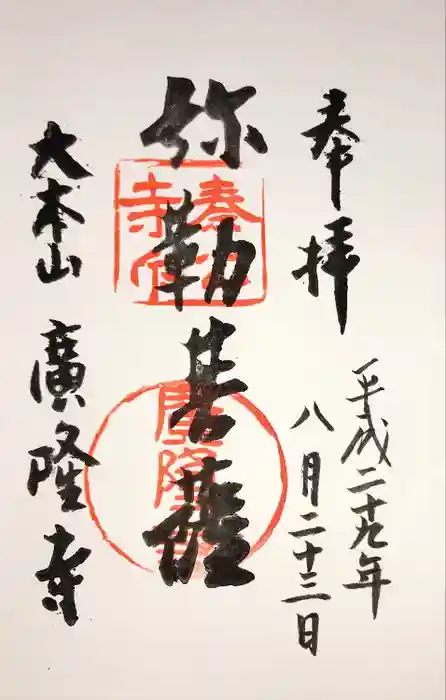 奉拝
平成二十九年
八月二十三日
弥勒菩薩
大本山 廣隆寺